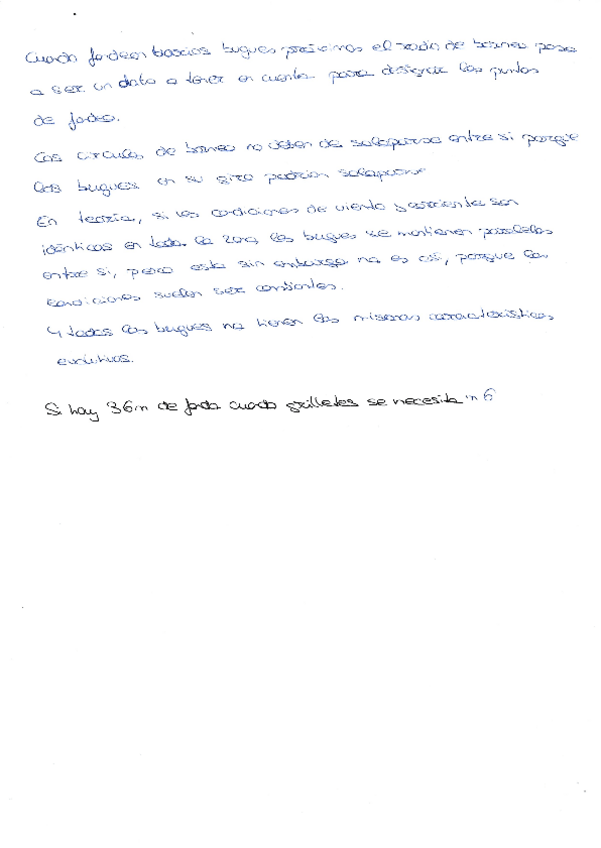 Cuando fondean barcios buques proximos el radio de borneo pasa
a ser un dato a tener en cuenta para designar los puntos
de fondeo.
Los circulos de borneo no deben de solaparse entre si porque
los buques en su giro podrian solaparse
En teoría, si las condiciones de viento y corriente son
idénticas en toda la zona los buques se mantienen paralelos
entre si, pero esto sin embargo no es asi, porque las
condiciones suelen ser constantes.
Y todos los buques no tienen las mismas caracteristicas
evolutivas.
Si hay 36m de fondo cuanto grilletes se necesita 6